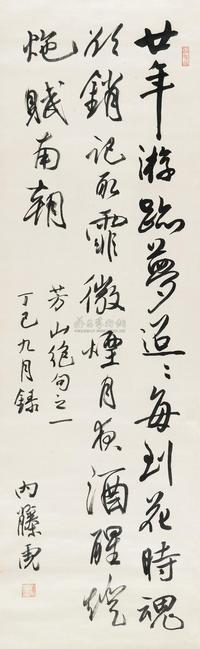 廿年游跡夢迢々每到花時魂
欲銷記取霏微煙月夜酒醒燈
炧賦南朝
芳山絶句之一
丁巳九月録
内藤虎